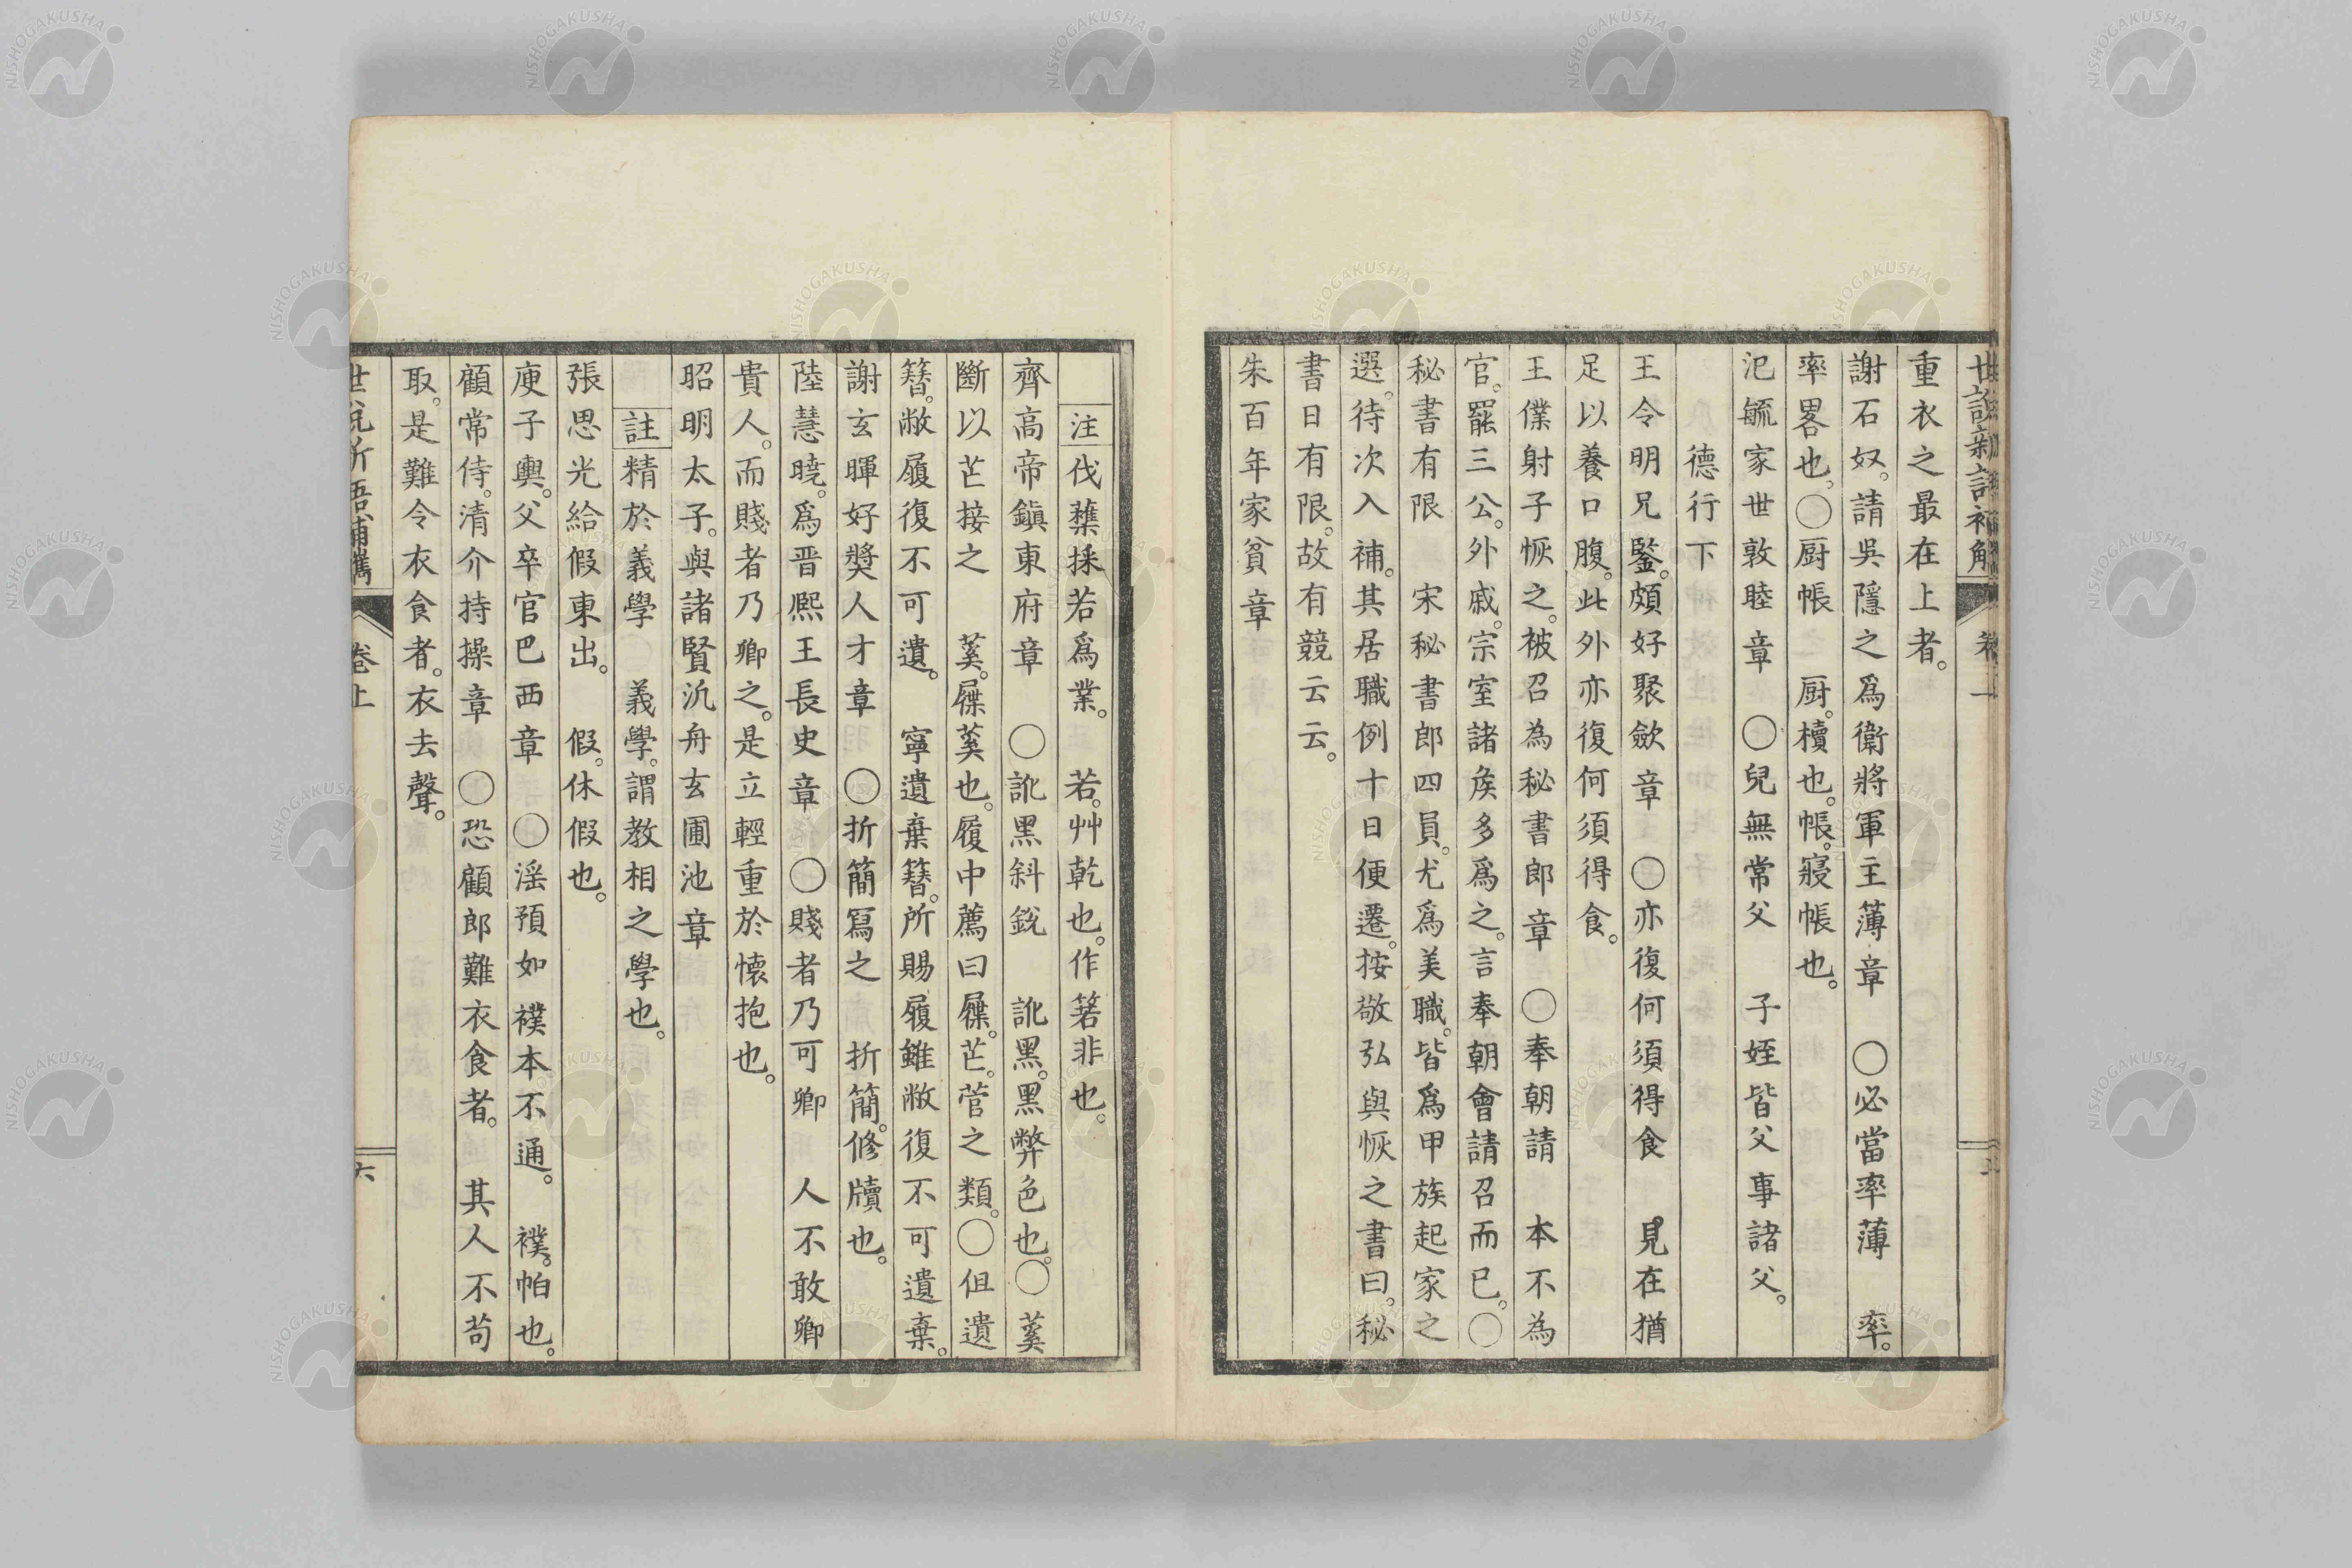 重衣之最在上者。
謝石奴。請吳隱之爲衛將軍主薄章 〇必當率薄 率。
率畧也。〇厨帳 厨。櫝也。帳。寢帳也。
氾毓家世敦睦章 〇兒無常父 子姪皆父事諸父。
德行下
王令明兄鑒。頗好聚斂章 〇亦復何須得食 見在猶
足以養口腹。此外亦復何須得食。
王僕射子恢之。被召為秘書郎章 〇奉朝請 本不為
官。罷三公。外戚。宗室諸矦多爲之。言奉朝會請召而已。〇
秘書有限 宋秘書郎四員。尤爲美職。皆爲甲族起家之
選。待次入補。其居職例十日便遷。按敬弘與恢之書曰。秘
書日有限。故有競云云。
朱百年家貧章
注 伐蘃採若爲業。 若。艸乾也。作箬非也。
齊高帝鎭東府章 〇訿黑斜銳 訿黑。黑弊色也。〇䒨
斷以芒接之 䒨。屧䒨也。履中薦曰屧。芒。菅之類。〇但遺
簪。敝履復不可遺。 寧遺棄簪。所賜履雖敝復不可遺棄。
謝玄暉好奬人才章 〇折簡寫之 折簡。修牘也。
陸慧曉。爲晋熈王長史章 〇賤者乃可卿 人不敢卿
貴人。而賤者乃卿之。是立輕重於懐抱也。
昭明太子。與諸賢汎舟玄圃池章
註 精於義學 義學。謂教相之學也。
張思光給假東出。 假。休假也。
庾子輿。父卒官巴西章 〇淫預如襆本不通。 襆。帕也。
顧常侍。清介持操章 〇恐顧郎難衣食者。 其人不苟
取。是難令衣食者。衣去聲。
卷上
六